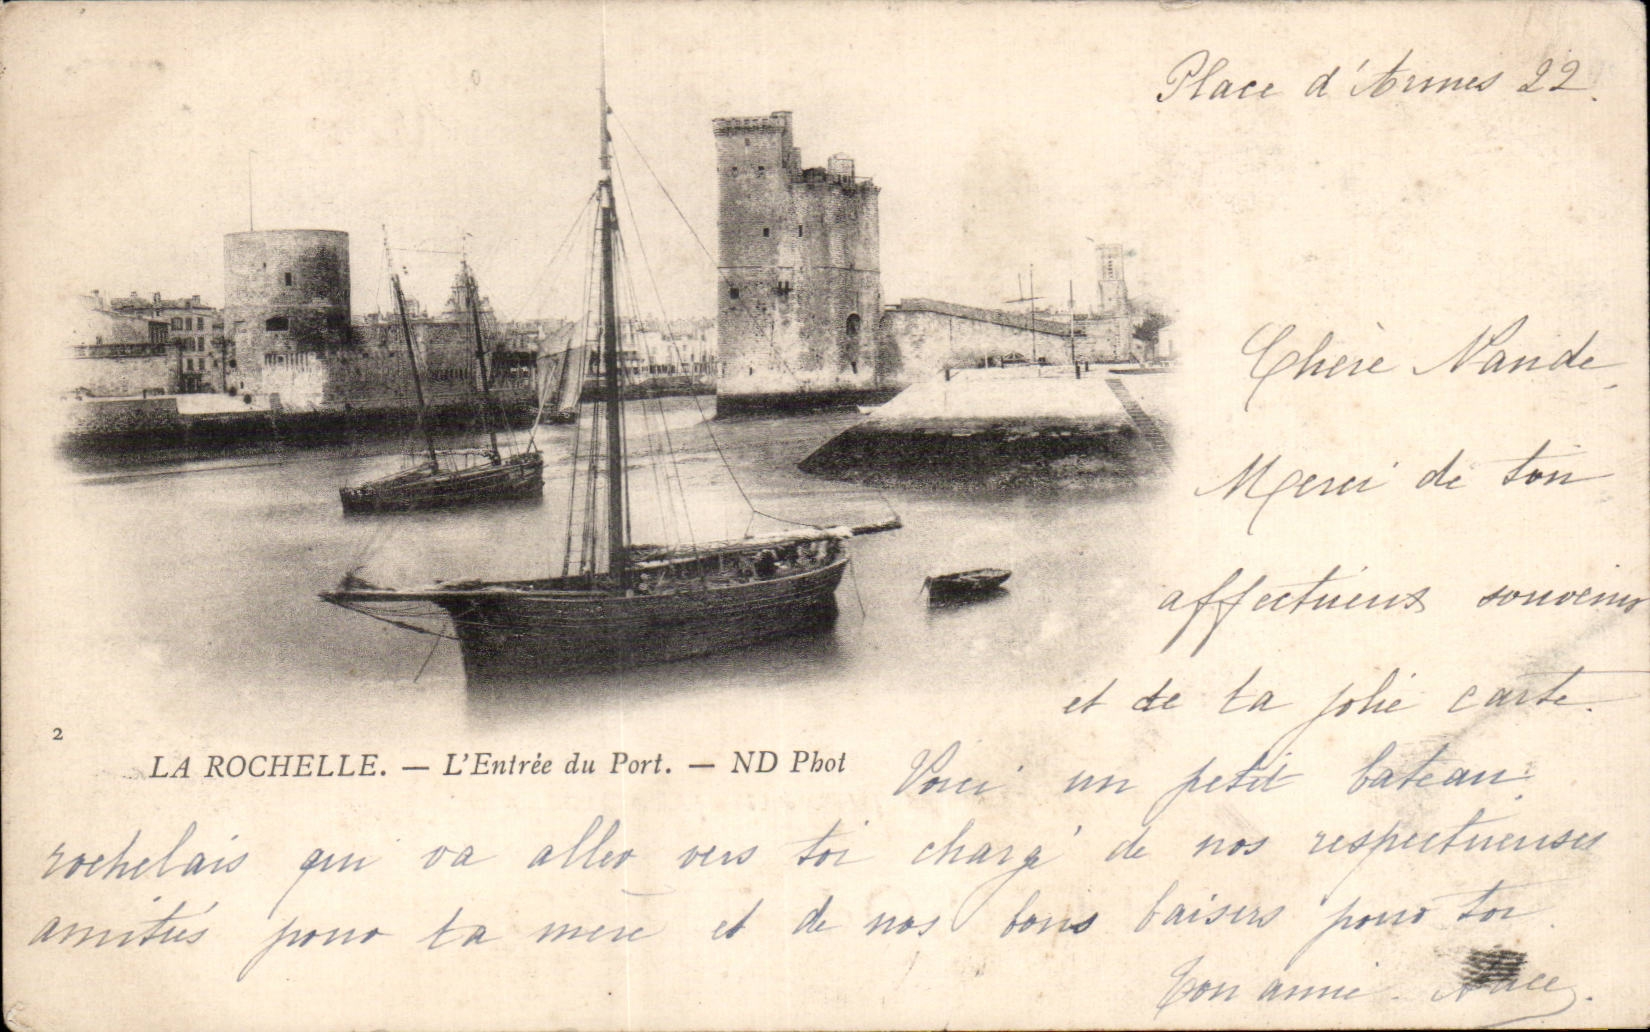 Place d'Armes 22.
Chère Nande,
Merci de ton
affectueux souvenir
et de ta jolie carte.
2
LA ROCHELLE. — L'Entrée du Port. — ND Phot
Voici un petit bateau
rochelais qui va aller vers toi chargé de nos respectueuses
amitiés pour ta mère et de nos bons baisers pour toi.
Ton amie.